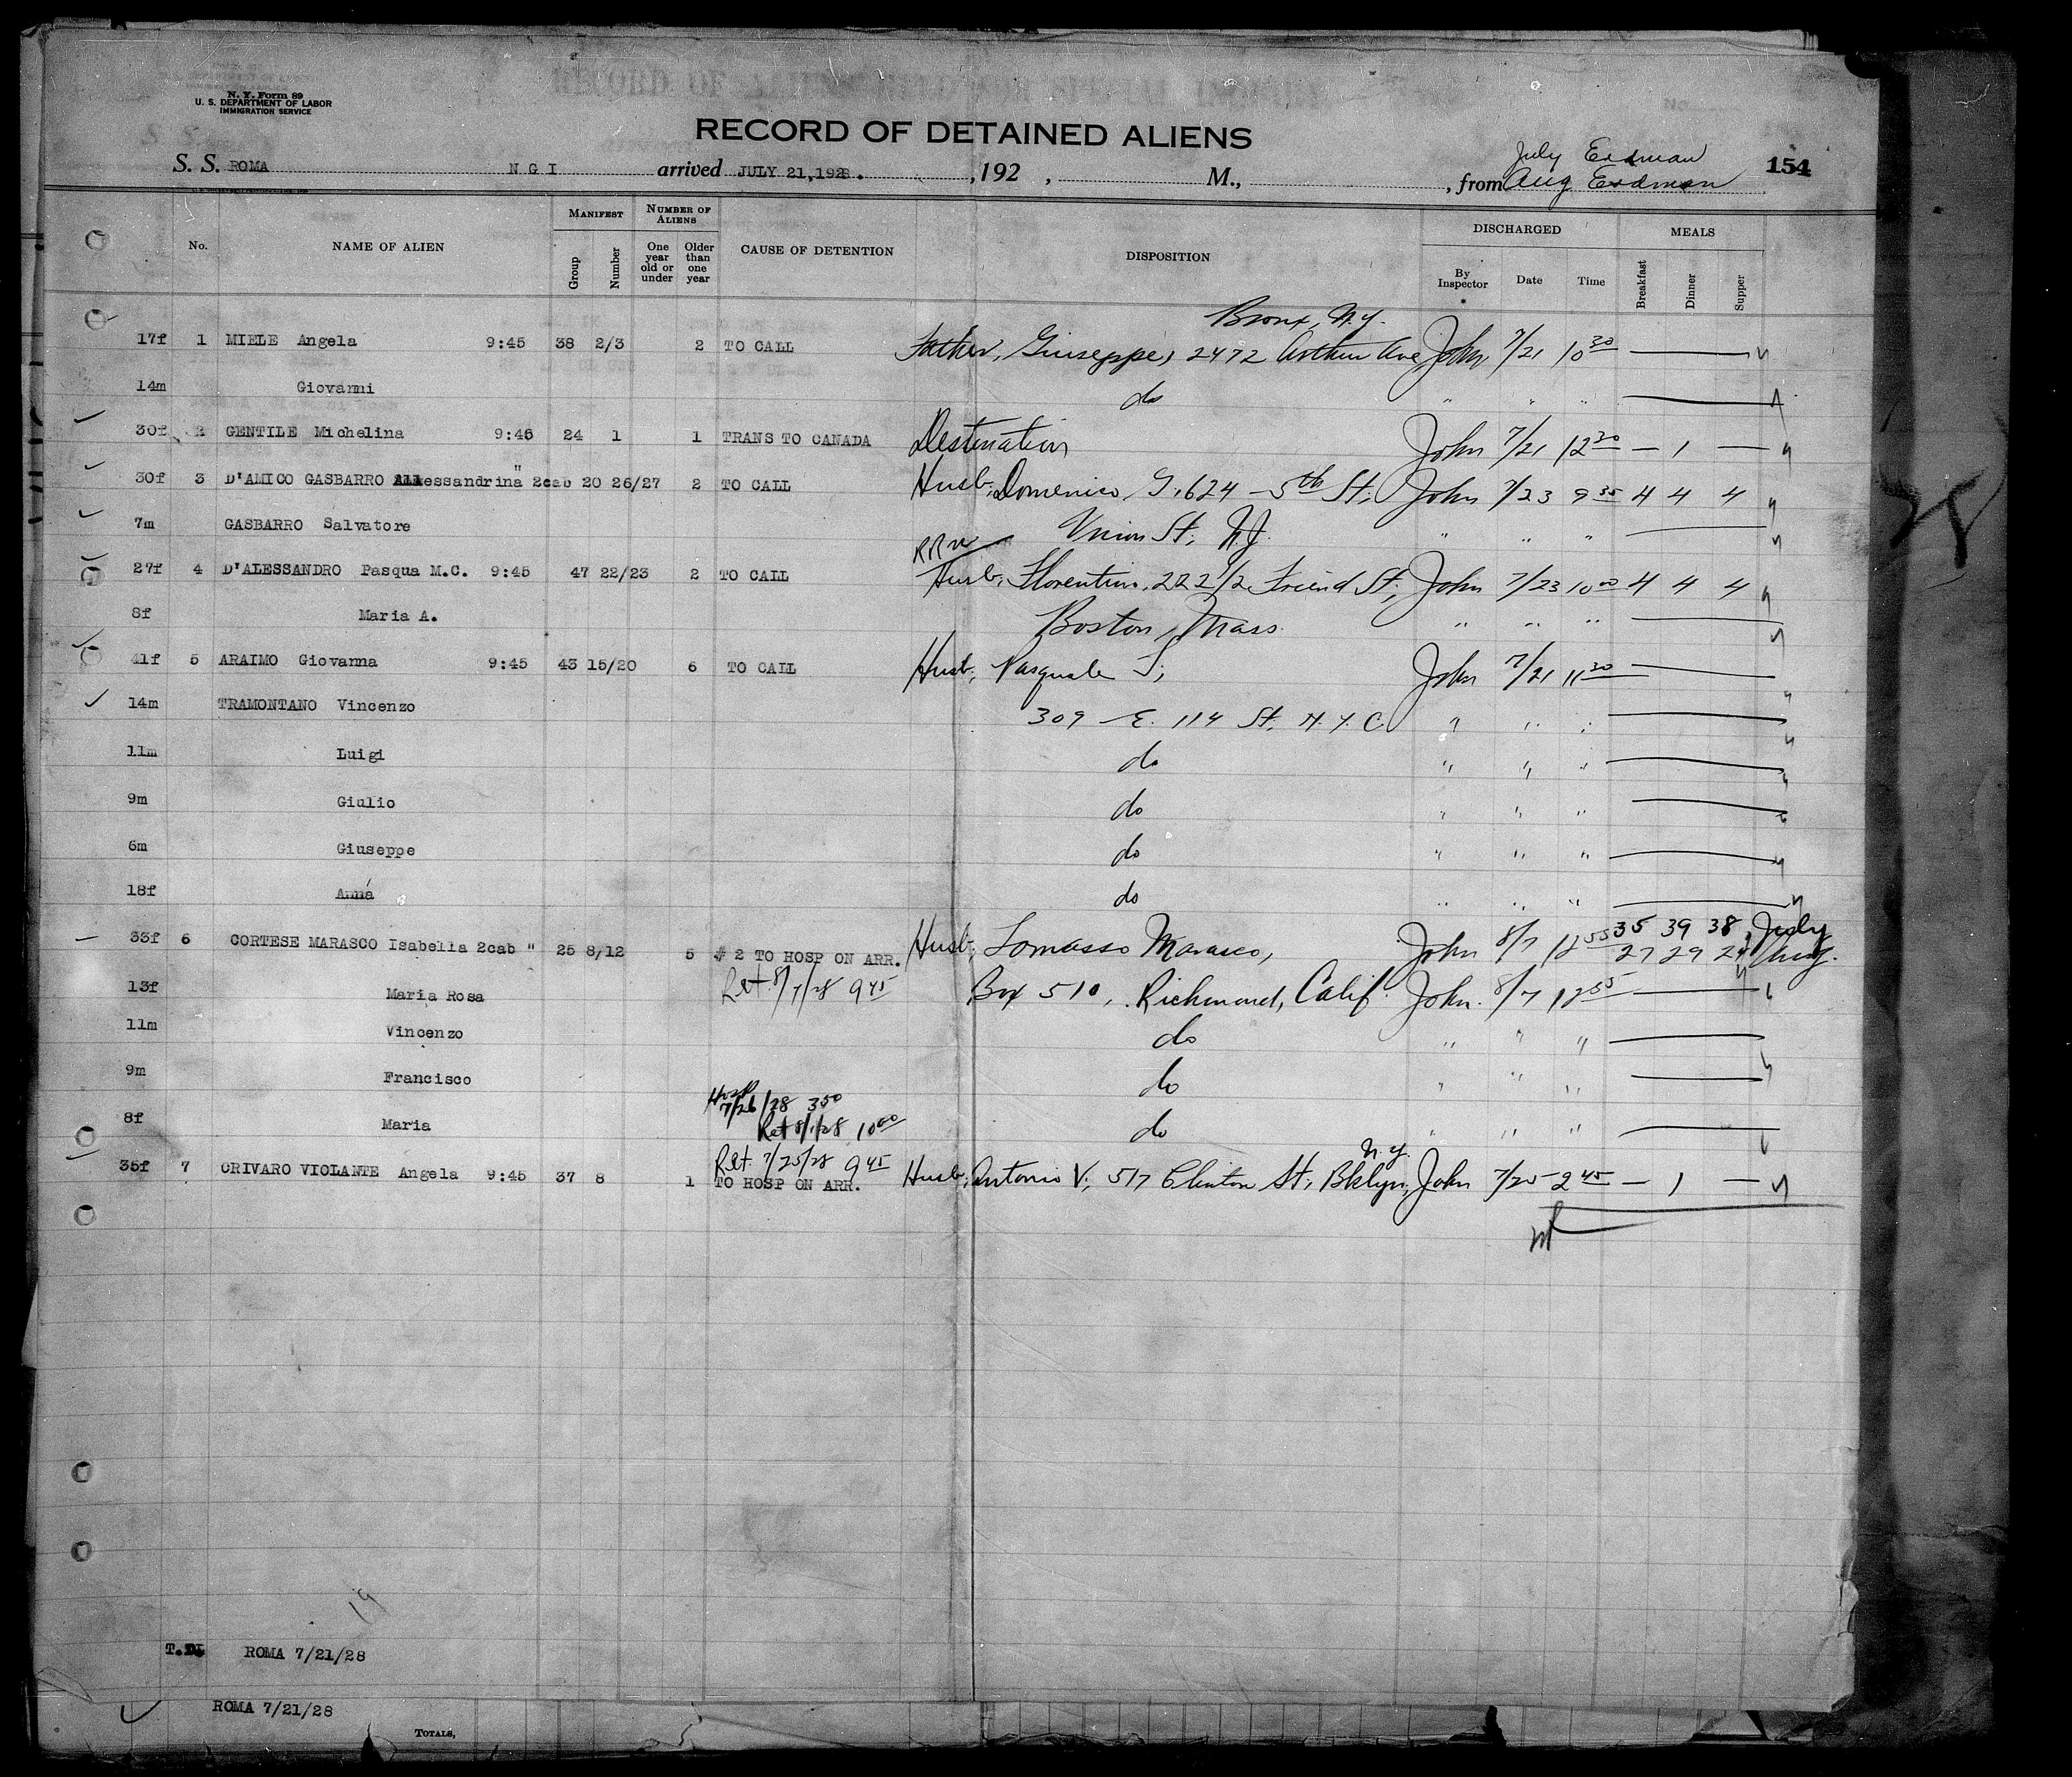 N. Y. Form 89
U. S. DEPARTMENT OF LABOR
IMMIGRATION SERVICE
RECORD OF DETAINED ALIENS
July Erdman
S. S. ROMA N G I arrived JULY 21, 1928. , 192 , M., , from Aug Erdman 154
No. NAME OF ALIEN MANIFEST Group Number NUMBER OF ALIENS One year old or under Older than one year CAUSE OF DETENTION DISPOSITION DISCHARGED By Inspector Date Time MEALS Breakfast Dinner Supper
Bronx, N.Y.
17f 1 MIELE Angela 9:45 38 2/3 2 TO CALL Father, Giuseppe, 2472 Arthur Ave John 7/21 10 30
14m Giovanni do " " "
30f 2 GENTILE Michelina 9:45 24 1 1 TRANS TO CANADA Destination John 7/21 12 30 — 1 —
30f 3 D'AMICO GASBARRO Allessandrina 2cab " 20 26/27 2 TO CALL Husb, Domenico G, 624 - 5th St; John 7/23 9 35 4 4 4
7m GASBARRO Salvatore Union St; N.J. " " "
27f 4 D'ALESSANDRO Pasqua M.C. 9:45 47 22/23 2 TO CALL Husb, Florentino, 222 1/2 Friend St; John 7/23 10 00 4 4 4
8f Maria A. Boston, Mass. " " "
41f 5 ARAIMO Giovanna 9:45 43 15/20 6 TO CALL Husb, Pasquale T; John 7/21 11 30
14m TRAMONTANO Vincenzo 309 E. 114 St. N.Y.C. " " "
11m Luigi do " " "
9m Giulio do " " "
6m Giuseppe do " " "
18f Anna do " " "
33f 6 CORTESE MARASCO Isabella 2cab " 25 8/12 5 # 2 TO HOSP ON ARR. Husb, Tomasso Marasco, John 8/7 12 55 35 39 38 July
27 29 24 Aug.
Ret. 8/7/28 9 45
13f Maria Rosa Box 510, Richmond, Calif. John. 8/7 12 55
11m Vincenzo do " " "
9m Francisco do " " "
Hosp 7/26/28 3 50
8f Maria Ret 8/1/28 10 00 do " " "
Ret. 7/25/28 9 45 N.Y.
35f 7 CRIVARO VIOLANTE Angela 9:45 37 8 1 TO HOSP ON ARR. Husb, Antonio V, 517 Clinton St, Bklyn, John 7/25 2 45 — 1 —
19
ROMA 7/21/28
ROMA 7/21/28
TOTALS,